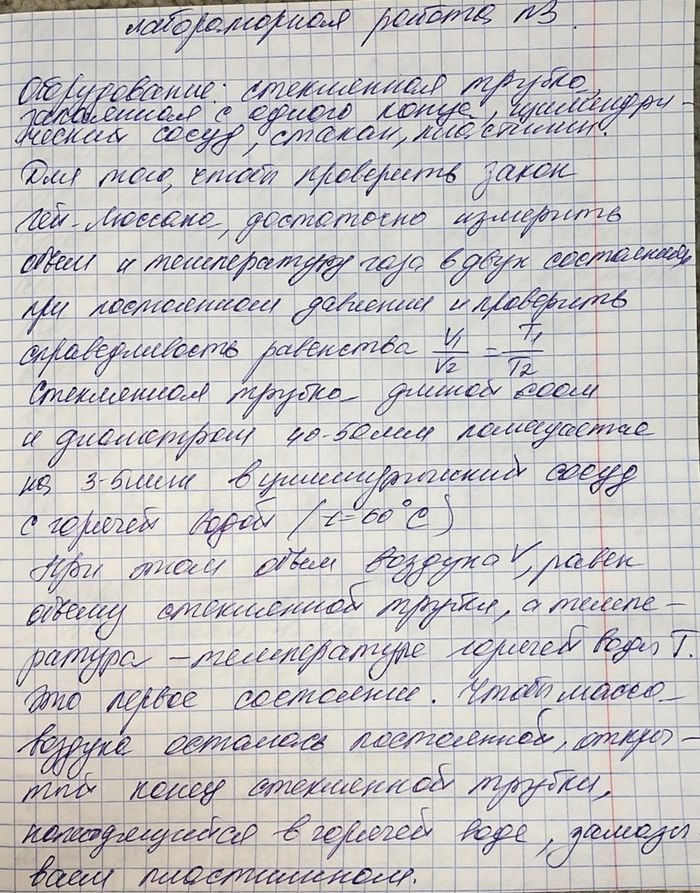 Лабораторная работа №3.
Оборудование: стеклянная трубка,
запаянная с одного конца, цилиндри-
ческий сосуд, стакан, пластилин.
Для того, чтобы проверить закон
Гей-Люссака, достаточно измерить
объём и температуру газа в двух состояниях
при постоянном давлении и проверить
справедливость равенства V1/V2 = T1/T2
Стеклянная трубка длиной
и диаметром 40-50мм помещается
на 3-5мин в цилиндрический сосуд
с горячей водой (t=60°C)
При этом объем воздуха V, равен
объему стеклянной трубки, а темпе-
ратура – температуре горячей воды T.
Это первое состояние. Чтобы масса
воздуха осталась постоянной, откры-
тый конец стеклянной трубки,
находящийся в горячей воде, замазы
ваем пластилином.